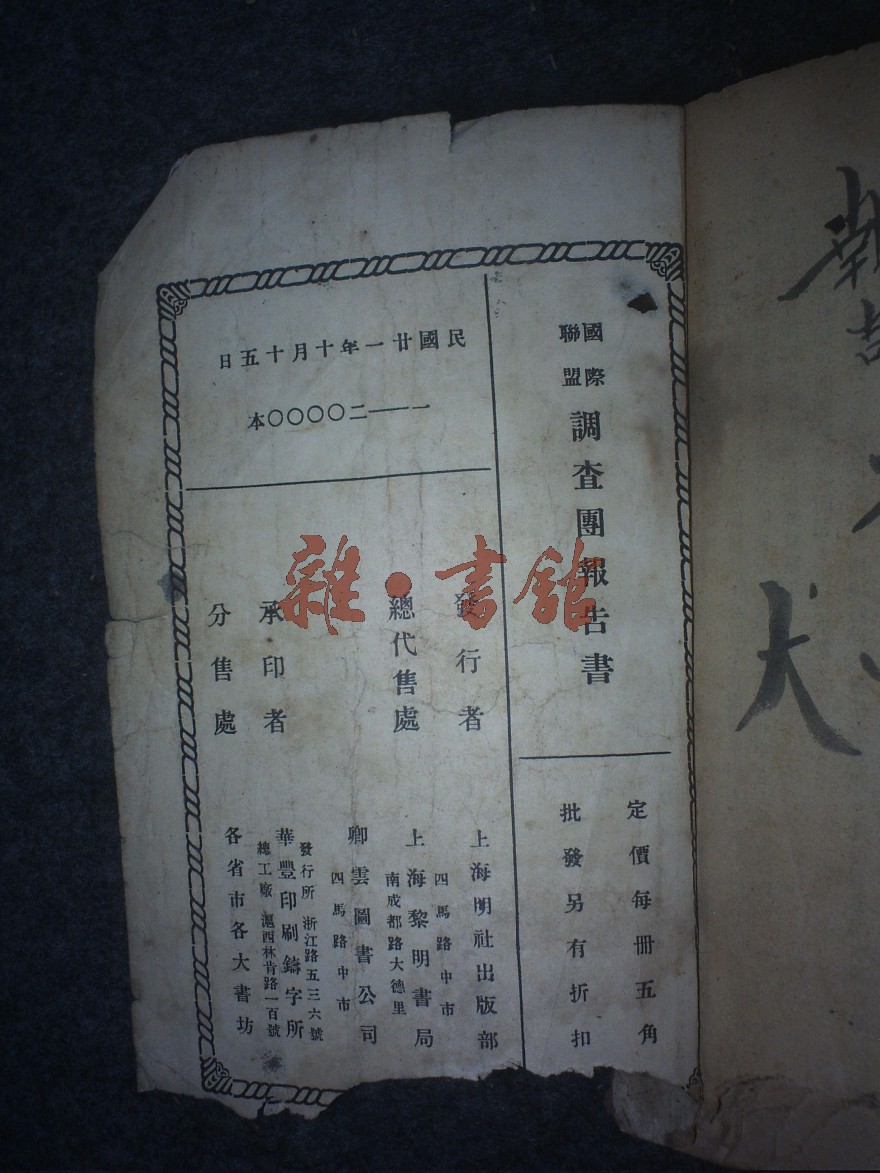 國際聯盟調查團報告書
定價每冊五角
批發另有折扣
民國廿一年十月十五日
一——二〇〇〇〇本
發行者
上海明社出版部
四馬路中市
總代售處
上海黎明書局
南成都路大德里
卿雲圖書公司
四馬路中市
承印者
發行所 浙江路五三六號
華豐印刷鑄字所
總工廠 滬西林肯路一百號
分售處
各省市各大書坊
雜·書館
犬